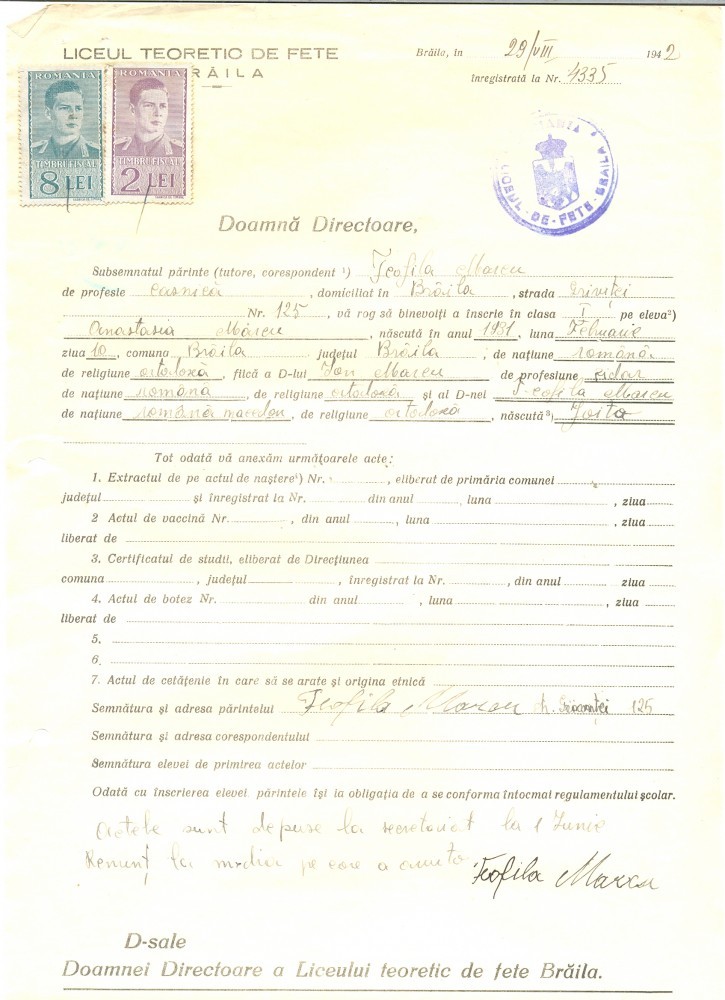 LICEUL TEORETIC DE FETE
BRĂILA
Brăila, în 29/VIII 1942
înregistrată la Nr. 4335
ROMANIA
TIMBRU FISCAL
8 LEI
ROMANIA
TIMBRU FISCAL
2 LEI
LICEUL - DE - FETE - BRAILA
Doamnă Directoare,
Subsemnatul părinte (tutore, corespondent ¹) Teofila Marcu
de profesie casnică, domiciliat în Brăila, strada Griviței
Nr. 125, vă rog să binevoiți a înscrie în clasa I pe eleva²)
Anastasia Marcu, născută în anul 1931, luna Februarie
ziua 10, comuna Brăila județul Brăila; de națiune română
de religiune ortodoxă, fiică a D-lui Ion Marcu de profesiune
de națiune română, de religiune ortodoxă și al D-nei Teofila Marcu
de națiune română macedon, de religiune ortodoxă, născută ³) Joita
Tot odată vă anexăm următoarele acte:
1. Extractul de pe actul de naștere⁴) Nr. , eliberat de primăria comunei
județul și înregistrat la Nr. din anul , luna , ziua
2 Actul de vaccină Nr. , din anul , luna , ziua
liberat de
3. Certificatul de studii, eliberat de Direcțiunea
comuna , județul , înregistrat la Nr. , din anul ziua
4. Actul de botez Nr. din anul , luna , ziua
liberat de
5.
6.
7. Actul de cetățenie în care să se arate și origina etnică
Semnătura și adresa părintelui Teofila Marcu 125
Semnătura și adresa corespondentului
Semnătura elevei de primirea actelor
Odată cu înscrierea elevei părintele își ia obligația de a se conforma întocmai regulamentului școlar.
Actele sunt depuse la secretariat la 1 Iunie
Renunț la media pe care a
Teofila Marcu
D-sale
Doamnei Directoare a Liceului teoretic de fete Brăila.